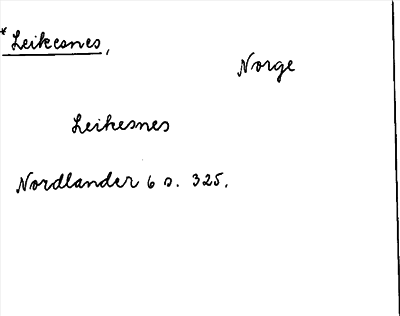 *Leikesnes,
Norge
Leikesnes
Nordlander 6 s. 325.